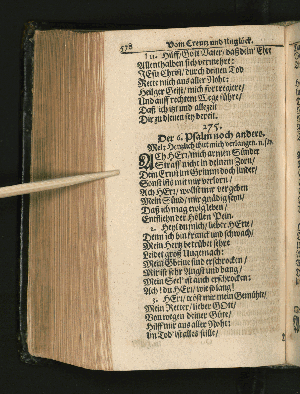 578 Vom Creutz und Unglück.
11. Hülff Gott Vater, daß dein Ehr
Allenthalben sich vermehre:
JEsu Christ, durch deinen Tod
Rette mich aus aller Noht:
Heilger Geist, mich fort regiere,
Und auff rechtem Wege führe,
Daß ich ist und allezeit
Dir zu dienen sey bereit.
275.
Der 6. Psalm noch anders.
Mel: Hertzlich thut mich verlangen. n.
ACh HErr, mich armen Sünder
Straff nicht in deinem Zorn,
Dein Ernsten Grimm doch linder,
Sonst ists mit mir verlorn,
Ach HErr, wollst mir vergeben
Mein Sünd, mir gnädig seyn,
Daß ich mag ewig leben,
Entfliehn der Höllen Pein.
2. Heyl du mich, lieber HErre,
Denn ich bin kranck und schwach,
Mein Hertz betrübet sehre
Leidet groß Ungemach:
Mein Gbeine sind erschrocken,
Mir ist sehr Angst und bang,
Mein Seel' ist auch erschrocken:
Ach! du HErr, wie so lang!
3. HErr, tröst mir mein Gemühte,
Mein Retter, lieber GOtt,
Von wegen deiner Güte,
Hilff mir aus aller Noht:
Im Tod' ist alles stille,